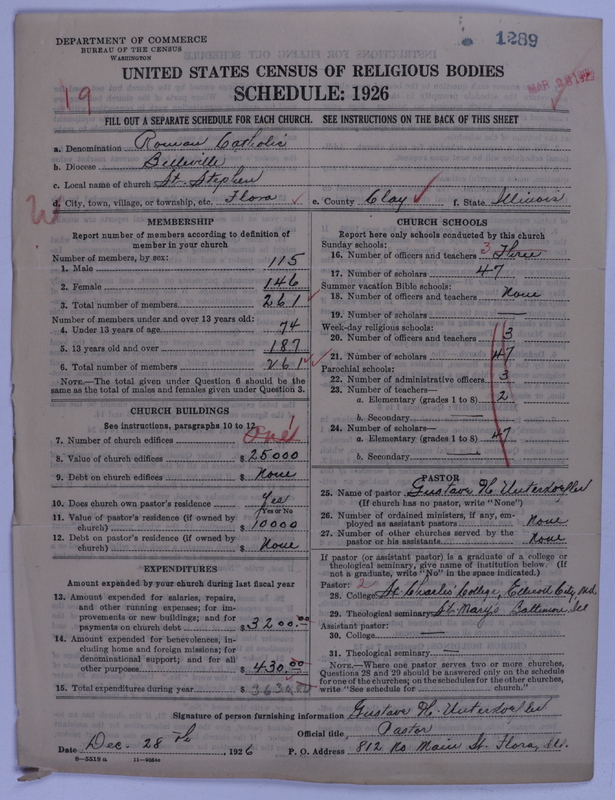 DEPARTMENT OF COMMERCE
BUREAU OF THE CENSUS
WASHINGTON
1289
UNITED STATES CENSUS OF RELIGIOUS BODIES
SCHEDULE: 1926
19
FILL OUT A SEPARATE SCHEDULE FOR EACH CHURCH. SEE INSTRUCTIONS ON THE BACK OF THIS SHEET
a. Denomination Roman Catholic
b. Diocese Belleville
c. Local name of church St. Stephen
d. City, town, village, or township, etc. Flora e. County Clay f. State Illinois
MEMBERSHIP
Report number of members according to definition of member in your church
Number of members, by sex:
1. Male 115
2. Female 146
3. Total number of members 261
Number of members under and over 13 years old:
4. Under 13 years of age 74
5. 13 years old and over 187
6. Total number of members 261
NOTE.—The total given under Question 6 should be the same as the total of males and females given under Question 3.
CHURCH BUILDINGS
See instructions, paragraphs 10 to 12
7. Number of church edifices One 1
8. Value of church edifices $ 25000
9. Debt on church edifices $ None
10. Does church own pastor's residence Yes
Yes or No
11. Value of pastor's residence (if owned by church) $ 10000
12. Debt on pastor's residence (if owned by church) $ None
EXPENDITURES
Amount expended by your church during last fiscal year
13. Amount expended for salaries, repairs, and other running expenses; for improvements or new buildings; and for payments on church debt $ 3200.—
14. Amount expended for benevolences, including home and foreign missions; for denominational support; and for all other purposes $ 430.00
15. Total expenditures during year $ 3630.00
CHURCH SCHOOLS
Report here only schools conducted by this church
Sunday schools:
16. Number of officers and teachers 3 Three
17. Number of scholars 47
Summer vacation Bible schools:
18. Number of officers and teachers None
19. Number of scholars —
Week-day religious schools:
20. Number of officers and teachers 3
21. Number of scholars 47
Parochial schools:
22. Number of administrative officers 3
23. Number of teachers—
a. Elementary (grades 1 to 8) 2
b. Secondary —
24. Number of scholars—
a. Elementary (grades 1 to 8) 47
b. Secondary —
PASTOR
25. Name of pastor Gustave H. Unterdoefler
(If church has no pastor, write "None")
26. Number of ordained ministers, if any, employed as assistant pastors None
27. Number of other churches served by the pastor or his assistants None
If pastor (or assistant pastor) is a graduate of a college or theological seminary, give name of institution below. (If not a graduate, write "No" in the space indicated.)
Pastor: 2
28. College St. Charles College, Ellicott City, Md.
29. Theological seminary St. Mary's Baltimore, Md
Assistant pastor:
30. College —
31. Theological seminary —
NOTE.—Where one pastor serves two or more churches, Questions 28 and 29 should be answered only on the schedule for one of the churches; on the schedules for the other churches, write "See schedule for church."
Signature of person furnishing information Gustave H. Unterdoefler
Official title Pastor
Date Dec. 28 th, 1926 P. O. Address 812 No Main St. Flora, Ill.
8—5518 a